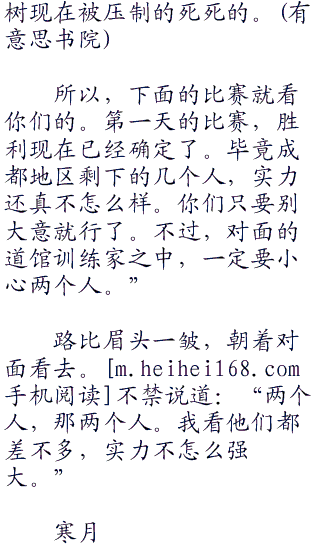 树现在被压制的死死的。(有
意思书院)
所以，下面的比赛就看
你们的。第一天的比赛，胜
利现在已经确定了。毕竟成
都地区剩下的几个人，实力
还真不怎么样。你们只要别
大意就行了。不过，对面的
道馆训练家之中，一定要小
心两个人。”
路比眉头一皱，朝着对
面看去。[m.heihei168.com
手机阅读]不禁说道：“两个
人，那两个人。我看他们都
差不多，实力不怎么强
大。”
寒月